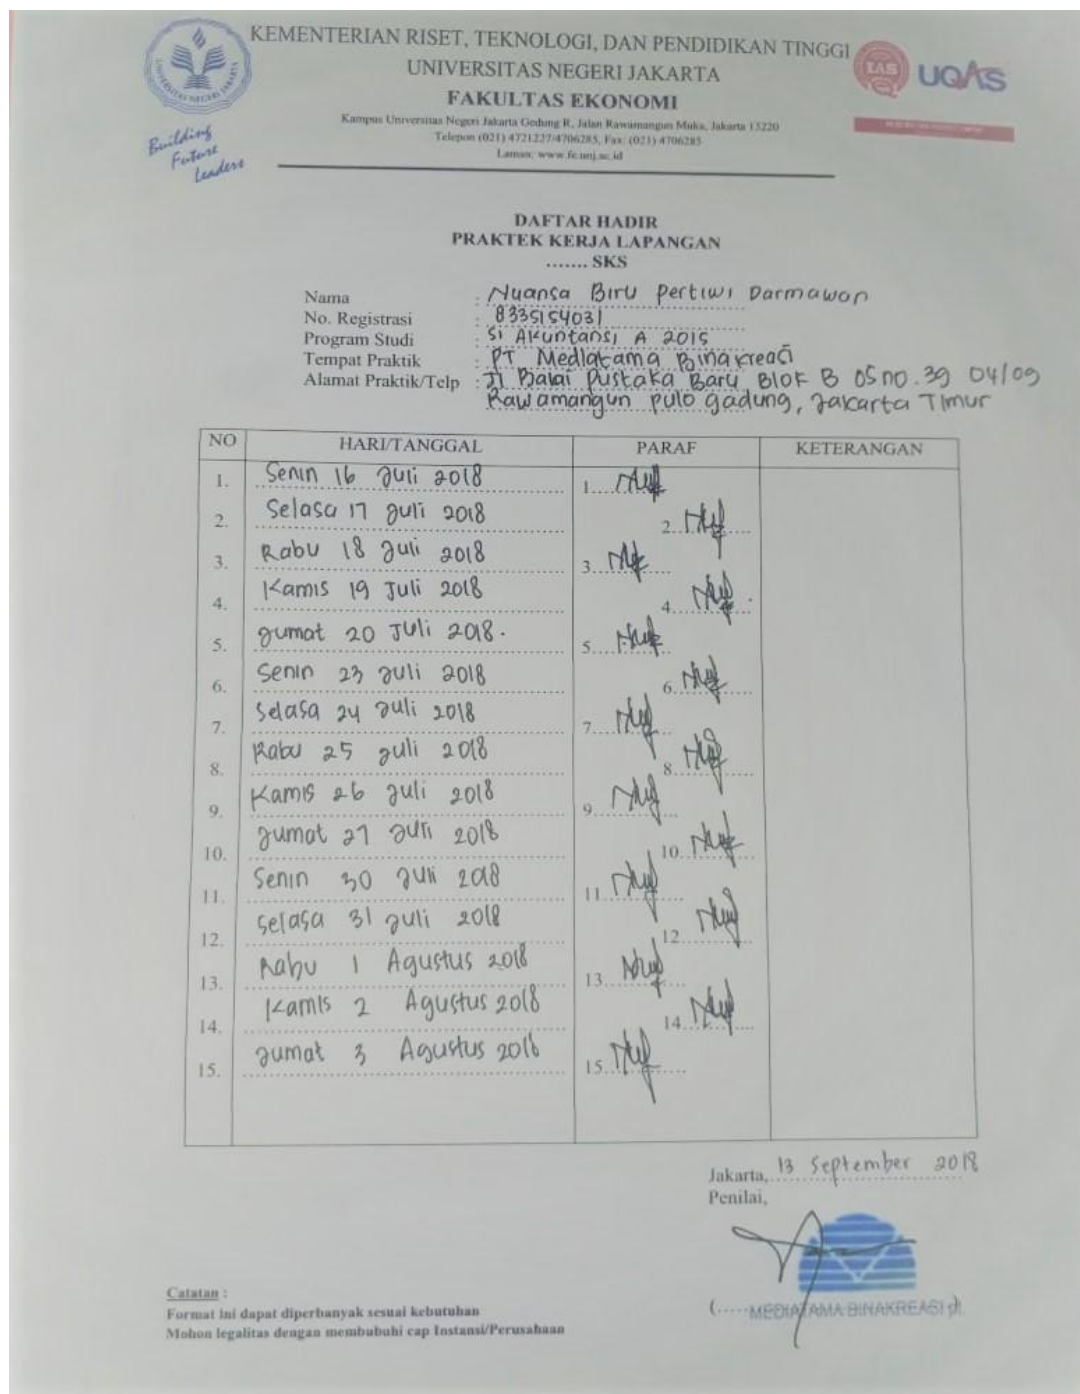 KEMENTERIAN RISET, TEKNOLOGI, DAN PENDIDIKAN TINGGI
UNIVERSITAS NEGERI JAKARTA
FAKULTAS EKONOMI
Kampus Universitas Negeri Jakarta Gedung R, Jalan Rawamangun Muka, Jakarta 13220
Telepon (021) 4721227/4706285, Fax: (021) 4706285
Laman: www.fe.unj.ac.id
UNIVERSITAS NEGERI JAKARTA
Building
Future
Leaders
IAS
UQAS
DAFTAR HADIR
PRAKTEK KERJA LAPANGAN
....... SKS
Nama : Nuansa Biru Pertiwi Darmawan
No. Registrasi : 8335154031
Program Studi : S1 Akuntansi A 2015
Tempat Praktik : PT Mediatama Binakreasi
Alamat Praktik/Telp : Jl Balai Pustaka Baru Blok B 05 no.39 04/09
Rawamangun pulo gadung, Jakarta Timur
NO HARI/TANGGAL PARAF KETERANGAN
1. Senin 16 Juli 2018 1.
2. Selasa 17 Juli 2018 2.
3. Rabu 18 Juli 2018 3.
4. Kamis 19 Juli 2018 4.
5. Jumat 20 Juli 2018. 5.
6. Senin 23 Juli 2018 6.
7. Selasa 24 Juli 2018 7.
8. Rabu 25 Juli 2018 8.
9. Kamis 26 Juli 2018 9.
10. Jumat 27 Juli 2018 10.
11. Senin 30 Juli 2018 11.
12. Selasa 31 Juli 2018 12.
13. Rabu 1 Agustus 2018 13.
14. Kamis 2 Agustus 2018 14.
15. Jumat 3 Agustus 2018 15.
Jakarta, 13 September 2018
Penilai,
(..... MEDIATAMA BINAKREASI pt.
Catatan :
Format ini dapat diperbanyak sesuai kebutuhan
Mohon legalitas dengan membubuhi cap Instansi/Perusahaan